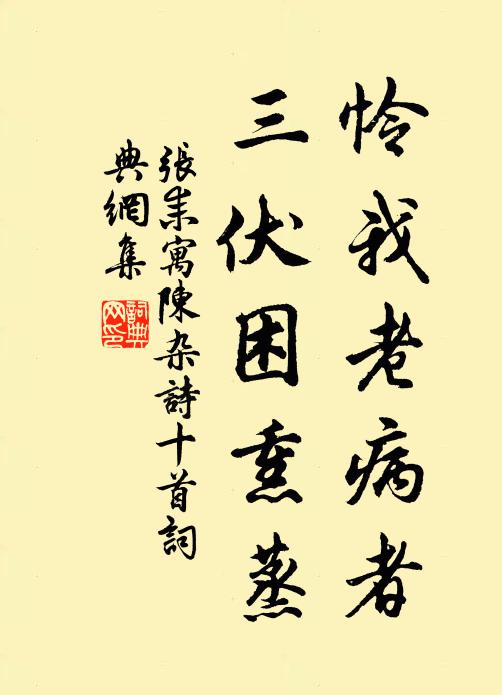 怜我老病者
三伏困熏蒸
張耒寓陳杂詩十首詞
典網集
詞典網印